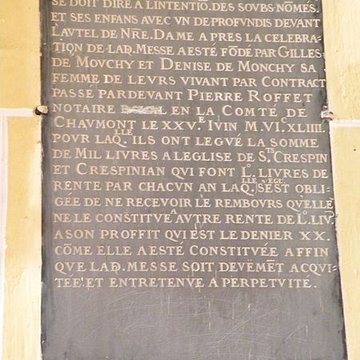 SE DOIT DIRE A L'INTENTIO. DES SOVBS NŌMES.
ET SES ENFANS AVEC VN DE PROFVNDIS DEVANT
L'AVTEL DE NRĒ. DAME A PRES LA CELEBRA
TION DE LAD. MESSE A ESTÉ FŌDÉ PAR GILLES
DE MOVCHY ET DENISE DE MONCHY SA
FEMME DE LEVRS VIVANT PAR CONTRACT
PASSÉ PARDEVANT PIERRE ROFFET
NOTAIRE EN LA COMTÉ DE
CHAVMONT LE XXV.E IVIN M. VI. XLIIII.
POVR LAQ.LLE ILS ONT LEGVÉ LA SOMME
DE MIL LIVRES A LEGLISE DE S.TS CRESPIN
ET CRESPINIAN QVI FONT L. LIVRES DE
RENTE PAR CHACVN AN LAQ.LLE EGE. SEST OBLI
GÉE DE NE RECEVOIR LE REMBOVRS QV'ELLE
NE LE CONSTITVE A AVTRE RENTE DE L. LIV.
A SON PROFFIT QVI EST LE DENIER XX.
CŌME ELLE A ESTÉ CONSTITVÉE AFFIN
QVE LAD. MESSE SOIT DEVEMĒT ACQVI
TÉE ET ENTRETENVE A PERPETVITE.